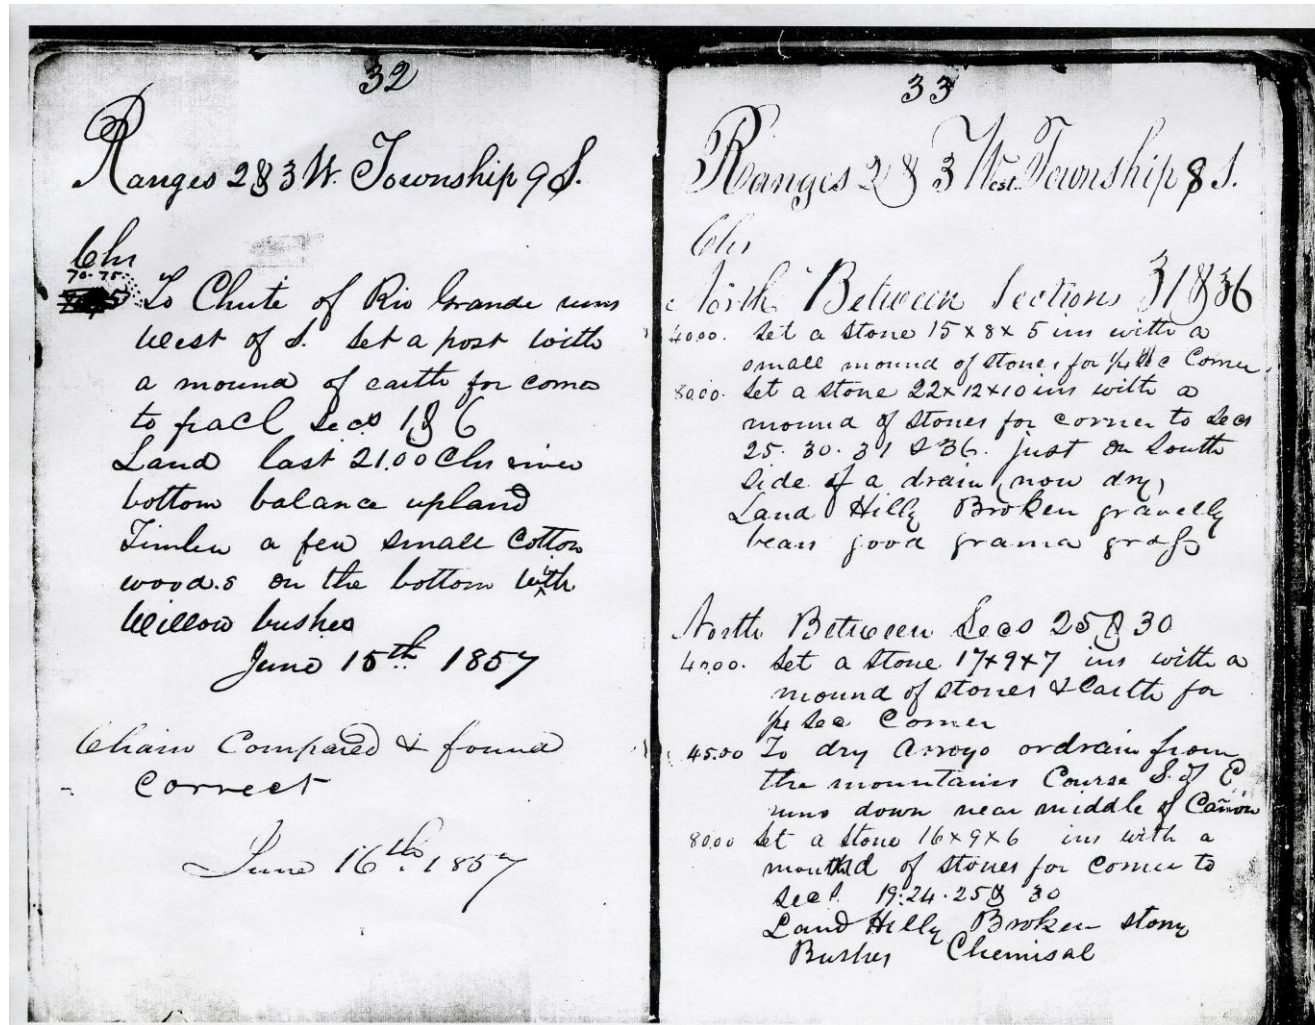 32
Ranges 2 & 3 W. Township 9 S.
Chs
70.75
To Chute of Rio Grande runs
West of S. Set a post with
a mound of earth for corner
to fracl Secs 1 & 6
Land last 21.00 Chs river
bottom balance upland
Timber a few small Cotton
woods on the bottom with
Willow bushes
June 15th 1857
Chain Compared & found
correct
June 16th 1857
33
Ranges 2 & 3 West Township 8 S.
Chs
North Between Sections 31 & 36
40.00. Set a Stone 15 x 8 x 5 ins with a
small mound of stone, for 1/4 Sec Corner.
80.00. Set a stone 22 x 12 x 10 ins with a
mound of stones for corner to Secs
25. 30. 31 & 36. just on South
side of a drain (now dry)
Land Hilly Broken gravelly
bears good grama grass
North Between Secs 25 & 30
40.00. Set a Stone 17 x 9 x 7 ins with a
mound of stones & Earth for
1/4 Sec Corner
45.00 To dry Arroyo or drain from
the mountains Course S. of E
runs down near middle of Cañon
80.00 Set a Stone 16 x 9 x 6 ins with a
mound of stones for Corner to
Secs. 19. 24. 25 & 30
Land Hilly Broken stony
Bushes Chemisal